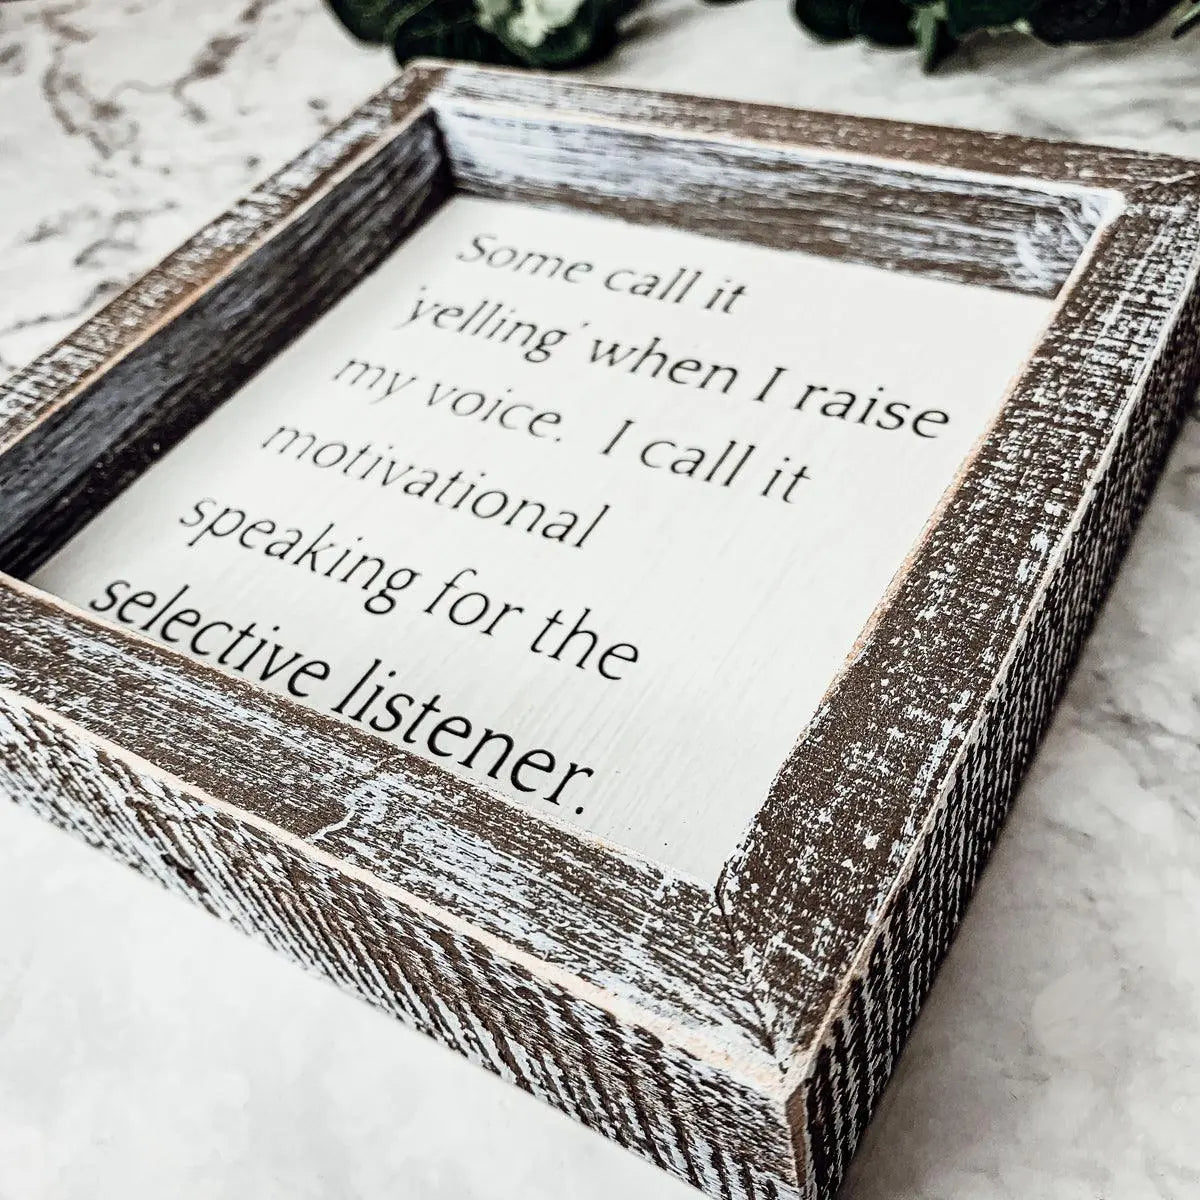 Some call it
'yelling' when I raise
my voice. I call it
motivational
speaking for the
selective listener.